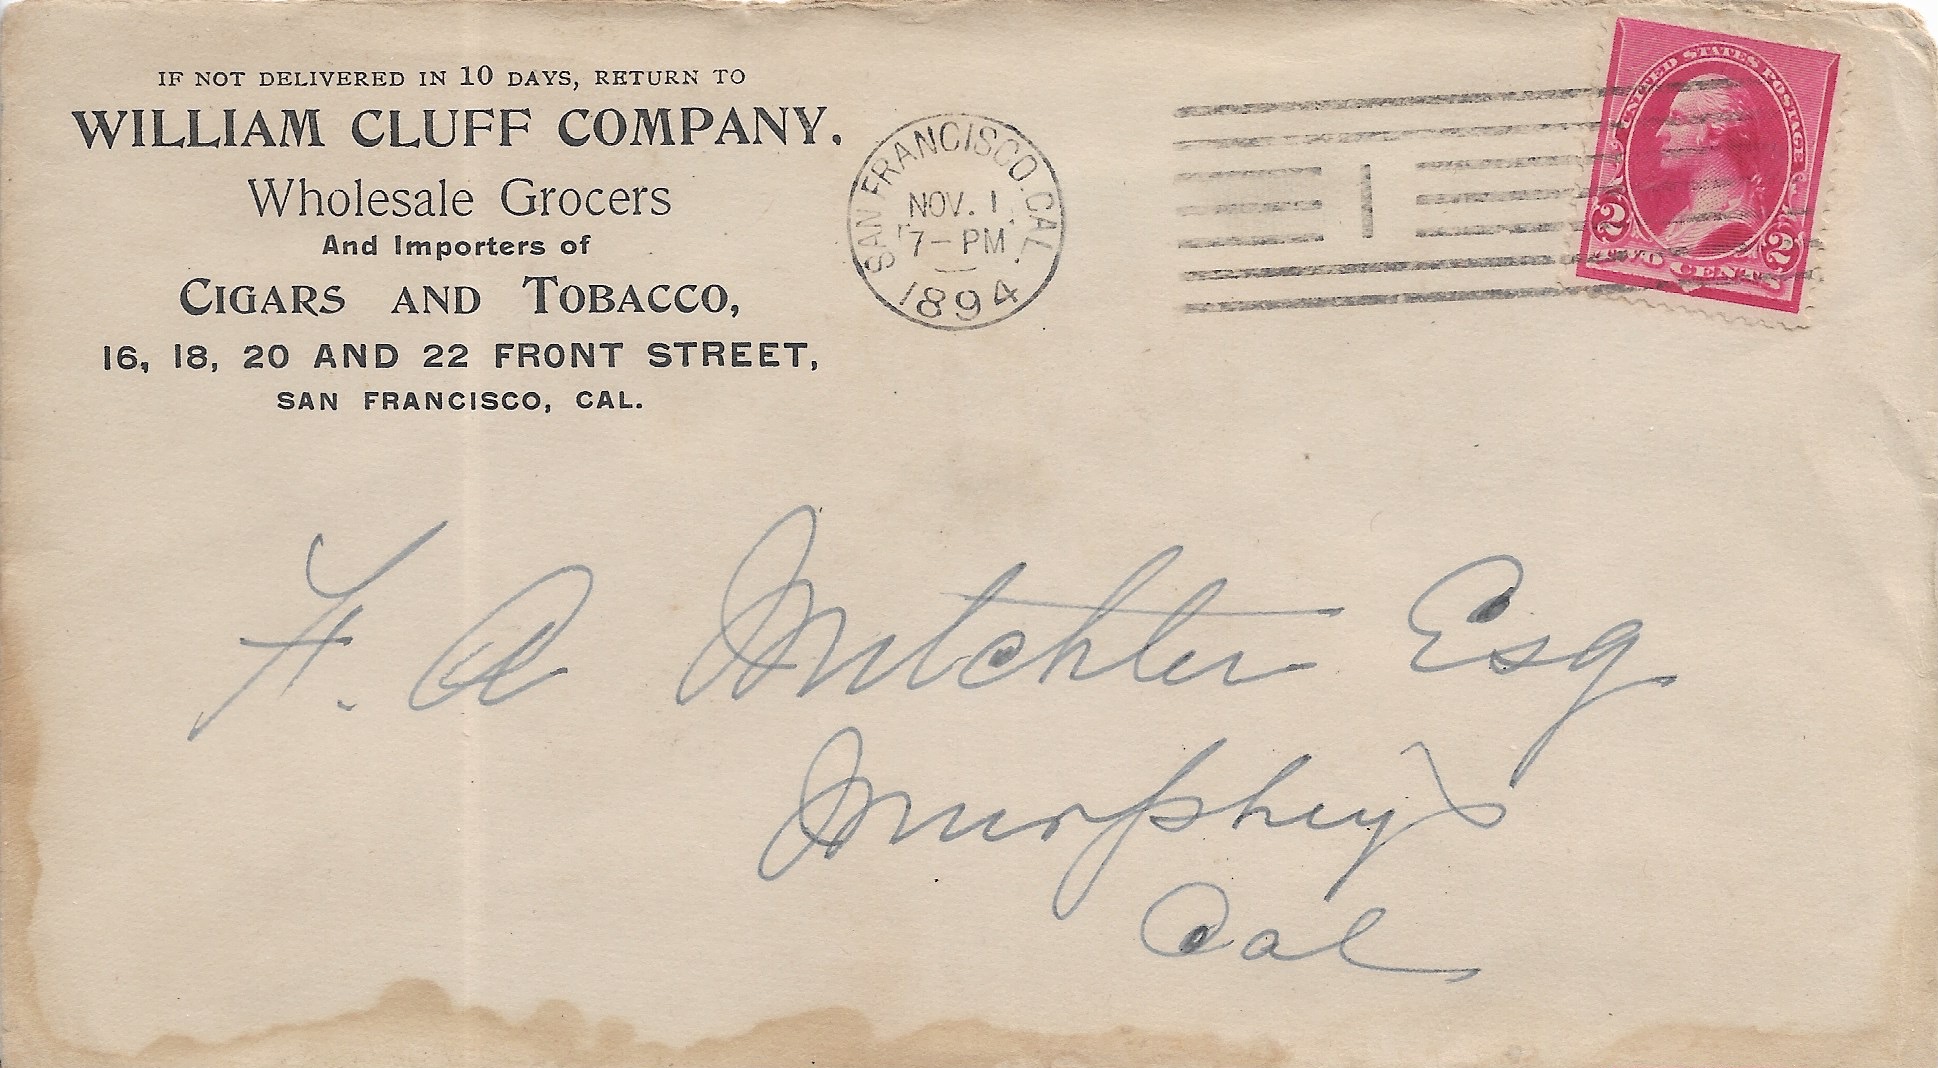 IF NOT DELIVERED IN 10 DAYS, RETURN TO
WILLIAM CLUFF COMPANY.
Wholesale Grocers
And Importers of
CIGARS AND TOBACCO,
16, 18, 20 AND 22 FRONT STREET,
SAN FRANCISCO, CAL.
SAN FRANCISCO. CAL.
NOV. 1
7-PM
1894
1
UNITED STATES POSTAGE
2 2
TWO CENTS
F. A Mitchler Esq
Murphey's
Cal